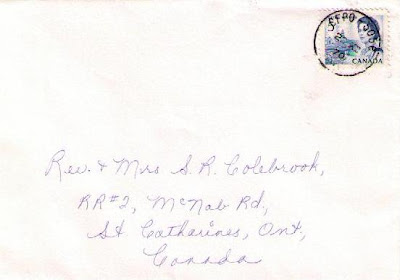 CANADA
Rev. & Mrs S. R. Colebrook,
RR#2, McNab Rd,
St Catharines, Ont,
Canada